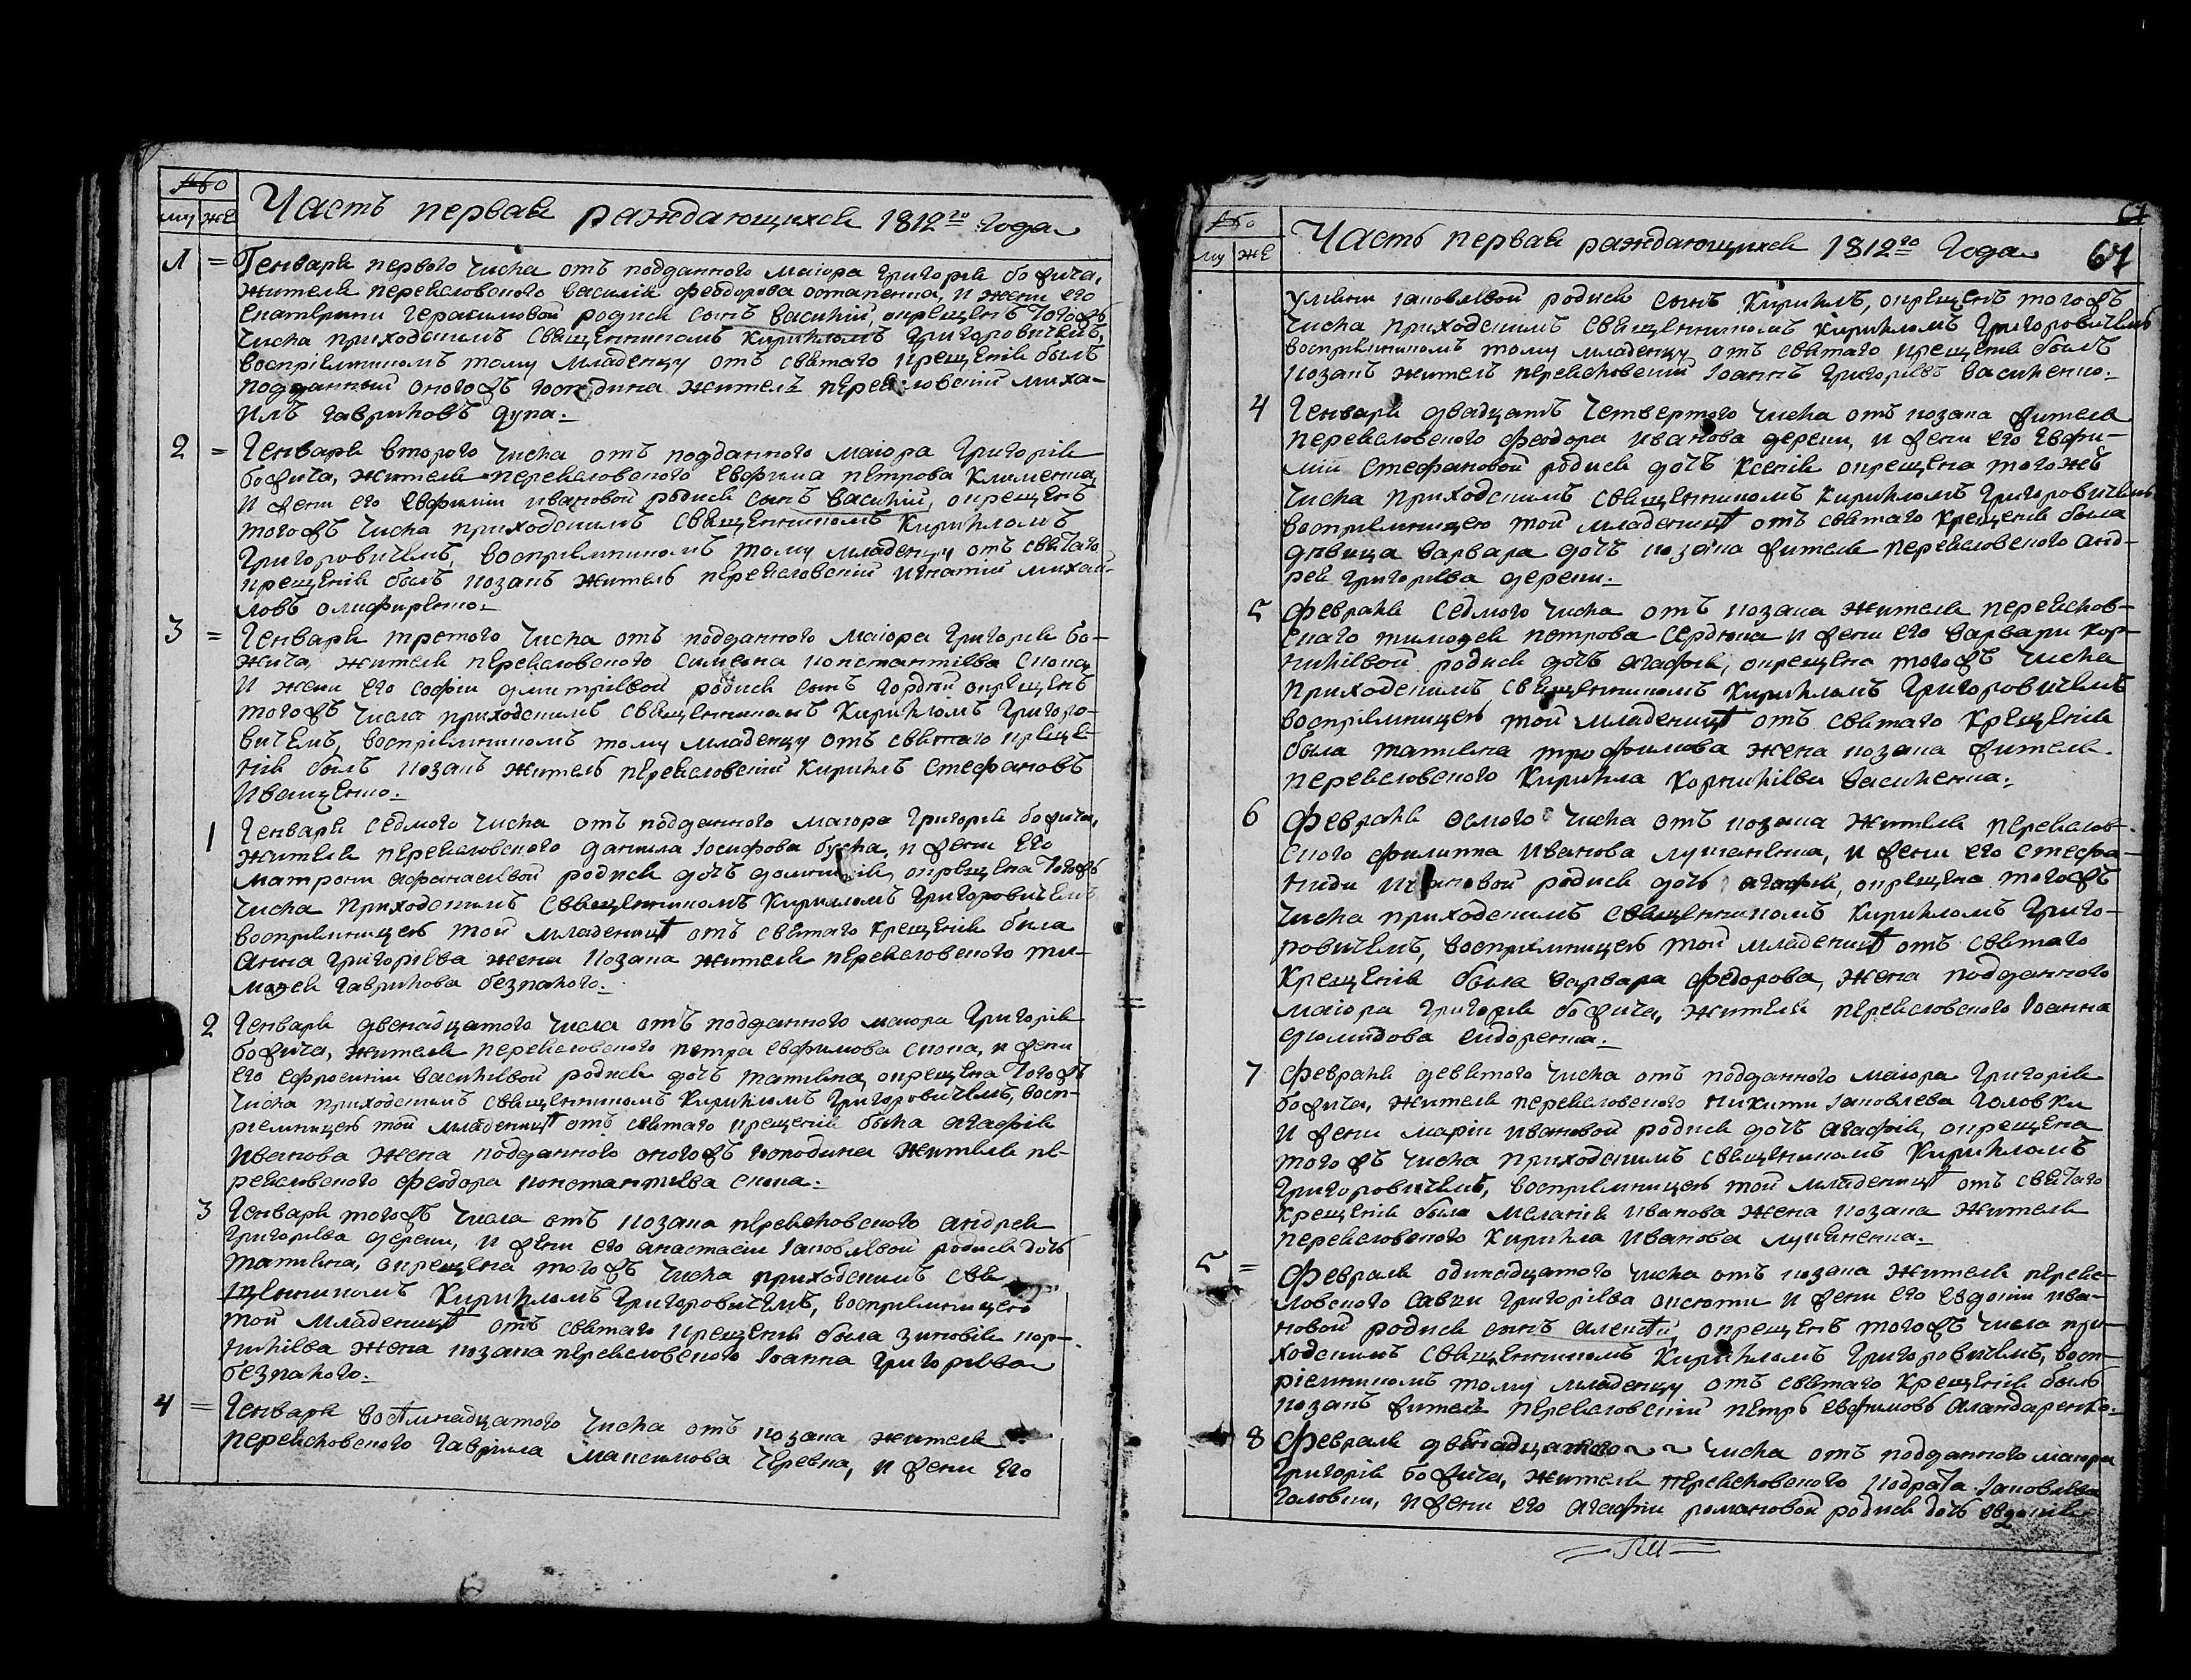 му же
Часть первая раждающихся 1812го года
1 = Генваря первого числа отъ подданного маіора Григорія божича,
жителя переясловского василія феодорова остапенка, и жени его
екатерини герасимовой родися сынъ василій, окрещенъ тогожъ
числа приходскимъ священникомъ Кирилломъ Григоровичемъ,
воспріемникомъ тому младенцу отъ святаго крещенія былъ
подданный оногожъ господина житель переясловскій миха-
илъ гавриловъ дупа.
2 = Генваря второго числа отъ подданного маіора Григорія
божича, жителя переясловского евфима петрова Клименка,
и жени его евфиміи ивановой родися сынъ василій, окрещенъ
тогожъ числа приходскимъ священникомъ Кирилломъ
Григоровичемъ, воспріемникомъ тому младенцу отъ святаго
крещенія былъ козакъ житель переясловскій игнатій михай-
ловъ олифиренко.
3 = Генваря третого числа отъ подданного маіора Григорія бо-
жича, жителя переясловского симеона константіева скока,
и жени его софіи дмитріевой родися сынъ гордій окрещенъ
тогожъ числа приходскимъ священникомъ Кирилломъ Григоро-
вичемъ, воспріемникомъ тому младенцу отъ святаго креще-
нія былъ козакъ житель переясловскій Кириллъ Стефановъ
Иващенко.
1 Генваря седмого числа отъ подданного маіора Григорія божича,
жителя переясловского даніила Іосифова и жени его
матрони афанасіевой родися дочъ окрещена тогожъ
числа приходскимъ священникомъ Кирилломъ Григоровичемъ
воспріемницею той младеницѣ отъ святаго крещенія была
анна григоріева жена козака жителя переясловского ти-
мофея гаврилова безпалого.
2 Генваря двенадцатого числа отъ подданного маіора Григорія
божича, жителя переясловского петра евфимова скока, и жени
его ефросиніи василіевой родися дочъ татіяна, окрещена тогожъ
числа приходскимъ священникомъ Кирилломъ Григоровичемъ, восп-
ріемницею той младеницѣ отъ святаго крещенія была агафія
иванова жена подданного оногожъ господина жителя пе-
реясловского феодора константіева скока.
3 Генваря тогожъ числа отъ козака переясловского андрея
григоріева дереки, и жени его анастасіи Іаковлевой родися дочъ
татіяна, окрещена тогожъ числа приходскимъ свя-
щенникомъ Кирилломъ Григоровичемъ, воспріемницею
той младеницѣ отъ святаго крещенія была зиновія кор-
ниліева жена козака переясловского Іоанна григоріева
безпалого.
4 = Генваря восѣмнадцатого числа отъ козака жителя
переясловского гавріила максимова черевка, и жени его
му же
Часть первая раждающихся 1812го Года 67
уліяни іаковлевой родися сынъ Кириллъ, окрещенъ тогожъ
числа приходскимъ священникомъ Кирилломъ Григоровичемъ
воспріемникомъ тому младенцу отъ святаго крещенія былъ
козакъ житель переясловскій Іоаннъ григоріевъ василенко.
4 Генваря двадцать четвертого числа отъ козака жителя
переясловского феодора иванова дереки, и жени его евфи-
міи стефановой родися дочъ ксенія окрещена того жъ
числа приходскимъ священникомъ Кирилломъ Григоровичемъ
воспріемницею той младеницѣ отъ святаго крещенія была
дѣвица варвара дочъ козака жителя переясловского анд-
рея григоріева дереки.
5 февраля седмого числа отъ козака жителя переяслов-
скаго тимофея петрова сердюка и жени его варвари кор-
ниліевой родися дочъ агафія, окрещена тогожъ числа
приходскимъ священникомъ Кирилломъ Григоровичемъ
воспріемницею той младеницѣ отъ святаго крещенія
была татіяна трофимова жена козака жителя
переясловского Кирилла Корниліева василенка.
6 февраля осмого числа отъ козака жителя переяслов-
ского филиппа иванова лушаненка, и жени его стефа-
ниди родися дочъ агафія, окрещена тогожъ
числа приходскимъ священникомъ Кирилломъ Григо-
ровичемъ, воспріемницею той младеницѣ отъ святаго
крещенія была варвара федорова, жена подданного
маіора григорія божича, жителя переясловского Іоанна
сидоренка.
7 февраля девятого числа отъ подданного маіора Григорія
божича, жителя переясловского никити Іаковлева головки
и жени маріи ивановой родися дочъ агафія, окрещена
того жъ числа приходскимъ священикомъ Кирилломъ
Григоровичемъ, воспріемницею той младеницѣ отъ святаго
крещенія была меланія иванова жена козака жителя
переясловского Кирилла иванова лушненка.
5 = февраля одинадцатого числа отъ козака жителя переяс-
ловского савки григоріева оксюти и жени его евдокіи ива-
новой родися сынъ алексѣй, окрещенъ тогожъ числа при-
ходскимъ священникомъ Кирилломъ Григоровичемъ, восп-
ріемникомъ тому младенцу отъ святаго крещенія былъ
козакъ житель переясловскій петръ евфимовъ аландаренко.
8 февраля двѣнадцатого числа отъ подданного маіора
григорія божича, жителя переясловского кодрата Іаковлева
головки, и жени его агафіи романовой родися дочъ евдокія